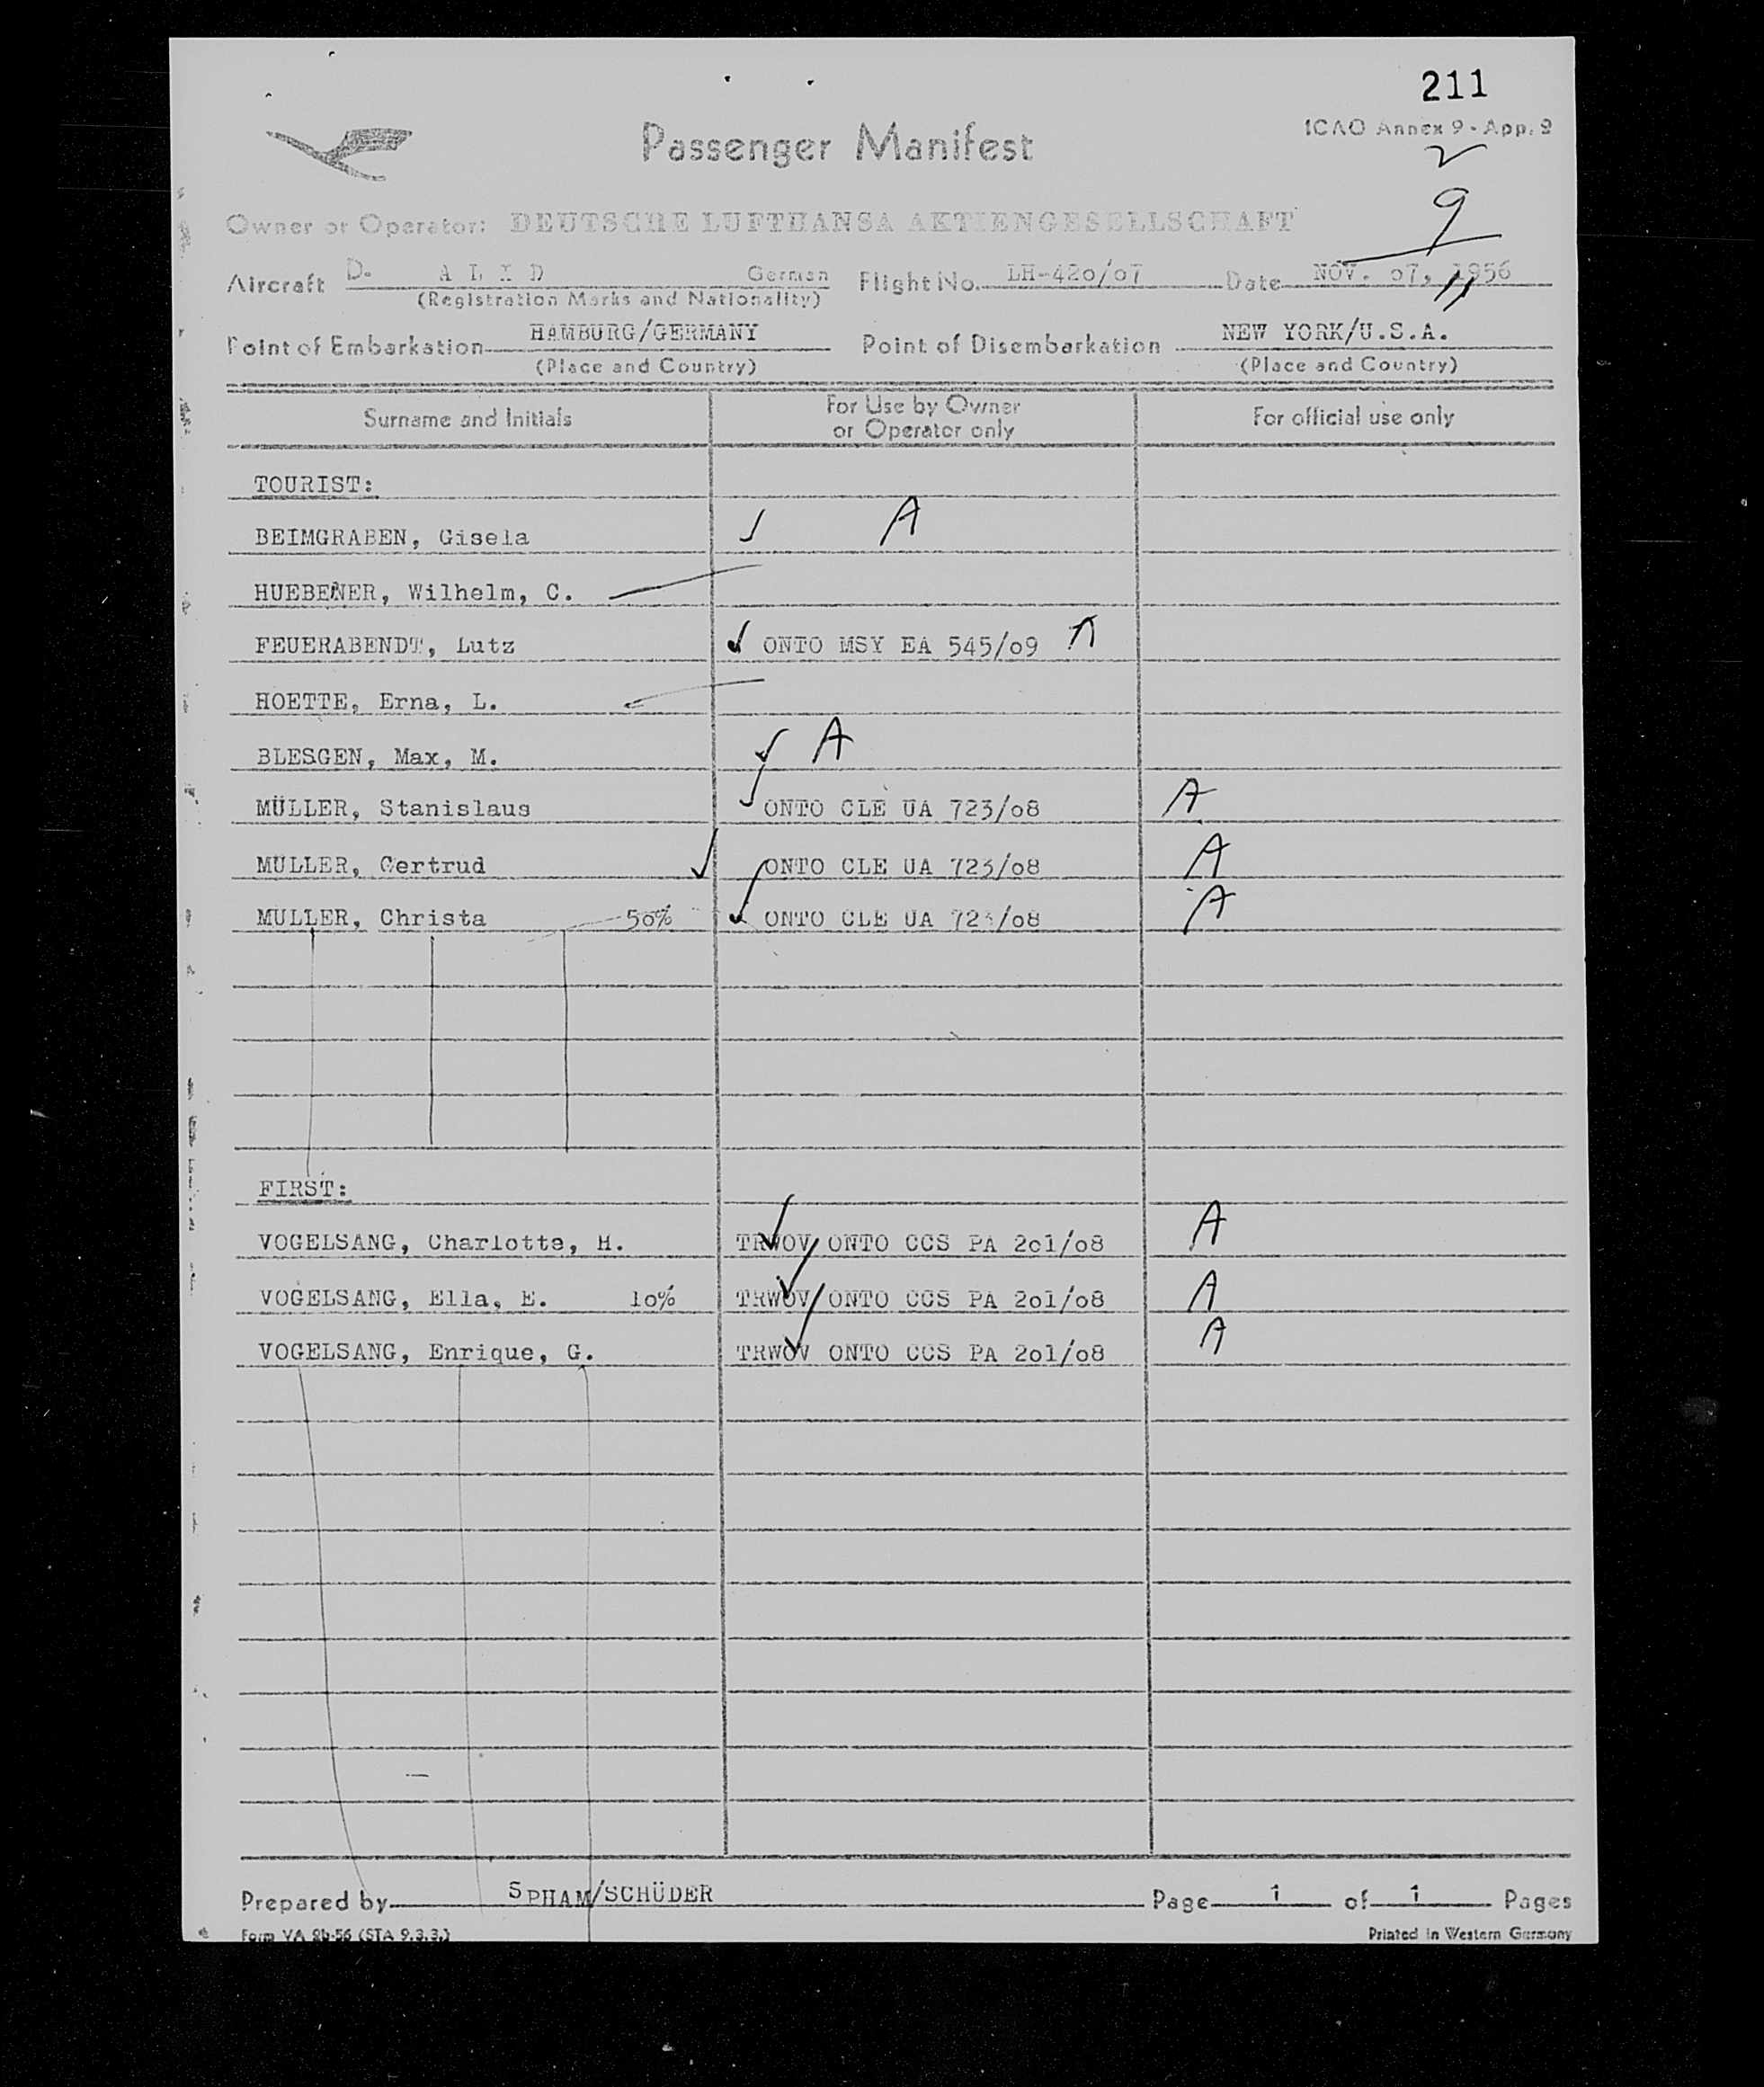 211
ICAO Annex 9 - App. 2
Passenger Manifest
2
9
Owner or Operator: DEUTSCHE LUFTHANSA AKTIENGESELLSCHAFT
Aircraft D. A L I D German Flight No. LH-42o/o7 Date NOV. o7, 1956
(Registration Marks and Nationality)
11
Point of Embarkation HAMBURG/GERMANY Point of Disembarkation NEW YORK/U.S.A.
(Place and Country) (Place and Country)
Surname and Initials For Use by Owner or Operator only For official use only
TOURIST:
BEIMGRABEN, Gisela A
HUEBENER, Wilhelm, C.
FEUERABENDT, Lutz ONTO MSY EA 545/o9 A
HOETTE, Erna, L.
BLESGEN, Max, M. A
MÜLLER, Stanislaus ONTO CLE UA 723/o8 A
MULLER, Gertrud ONTO CLE UA 723/o8 A
MULLER, Christa 5o% ONTO CLE UA 723/o8 A
FIRST:
VOGELSANG, Charlotte, H. TRWOV ONTO CCS PA 2o1/o8 A
VOGELSANG, Ella, E. 1o% TRWOV ONTO CCS PA 2o1/o8 A
VOGELSANG, Enrique, G. TRWOV ONTO CCS PA 2o1/o8 A
Prepared by SPHAM/SCHÜDER Page 1 of 1 Pages
Form VA 2b-56 (STA 9.3.3.) Printed in Western Germany